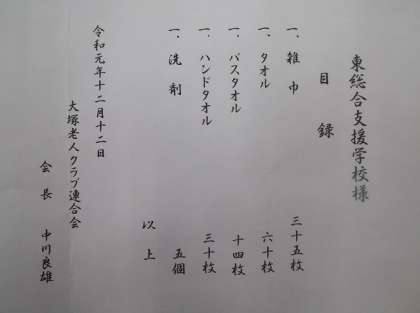 東総合支援学校様
目録
一、雑巾 三十五枚
一、タオル 六十枚
一、バスタオル 十四枚
一、ハンドタオル 三十枚
一、洗剤 五個
以上
令和元年十二月十二日
大塚老人クラブ連合会
会長 中川良雄